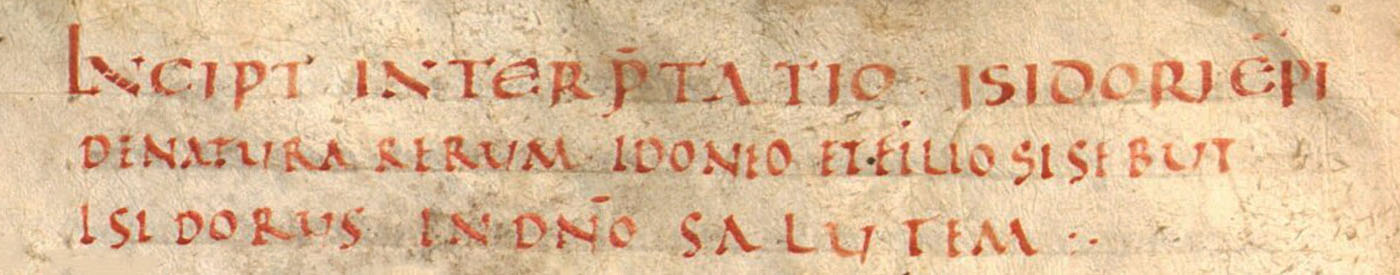 INCIPT INTERP̄TATIO ISIDORI EP̄I
DE NATURA RERUM IDONEO ET FILIO SISEBUT
ISIDORUS IN DN̄O SALUTEM :·